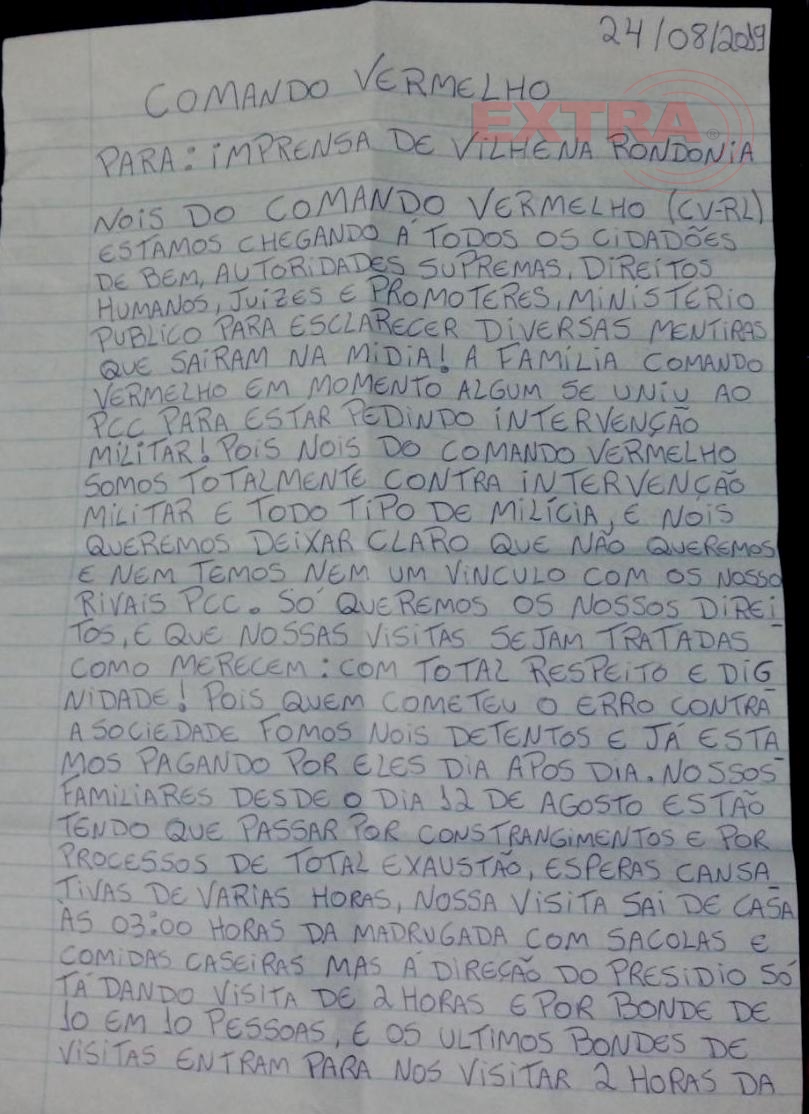 24/08/2019
COMANDO VERMELHO
EXTRA
PARA: IMPRENSA DE VILHENA RONDONIA
NOIS DO COMANDO VERMELHO (CV-RL)
ESTAMOS CHEGANDO Á TODOS OS CIDADÕES
DE BEM, AUTORIDADES SUPREMAS, DIREITOS
HUMANOS, JUIZES E PROMOTERES, MINISTÉRIO
PUBLICO PARA ESCLARECER DIVERSAS MENTIRAS
QUE SAIRAM NA MIDIA! A FAMILIA COMANDO
VERMELHO EM MOMENTO ALGUM SE UNIU AO
PCC PARA ESTAR PEDINDO INTERVENÇÃO
MILITAR! POIS NOIS DO COMANDO VERMELHO
SOMOS TOTALMENTE CONTRA INTERVENÇÃO
MILITAR E TODO TIPO DE MILÍCIA, E NÓIS
QUEREMOS DEIXAR CLARO QUE NÃO QUEREMOS
E NEM TEMOS NEM UM VINCULO COM OS NOSSO
RIVAIS PCC. SÓ QUEREMOS OS NOSSOS DIREI
TOS, E QUE NOSSAS VISITAS SEJAM TRATADAS
COMO MERECEM: COM TOTAL RESPEITO E DIG
NIDADE! POIS QUEM COMETEU O ERRO CONTRA
A SOCIEDADE FOMOS NOIS DETENTOS E JÁ ESTA
MOS PAGANDO POR ELES DIA APOS DIA. NOSSOS
FAMILIARES DESDE O DIA 12 DE AGOSTO ESTÃO
TENDO QUE PASSAR POR CONSTRANGIMENTOS E POR
PROCESSOS DE TOTAL EXAUSTÃO, ESPERAS CANSA
TIVAS DE VARIAS HORAS, NOSSA VISITA SAI DE CASA
ÀS 03:00 HORAS DA MADRUGADA COM SACOLAS E
COMIDAS CASEIRAS MAS Á DIREÇÃO DO PRESIDIO SÓ
TÁ DANDO VISITA DE 2 HORAS E POR BONDE DE
10 EM 10 PESSOAS, E OS ULTIMOS BONDES DE
VISITAS ENTRAM PARA NOS VISITAR 2 HORAS DA